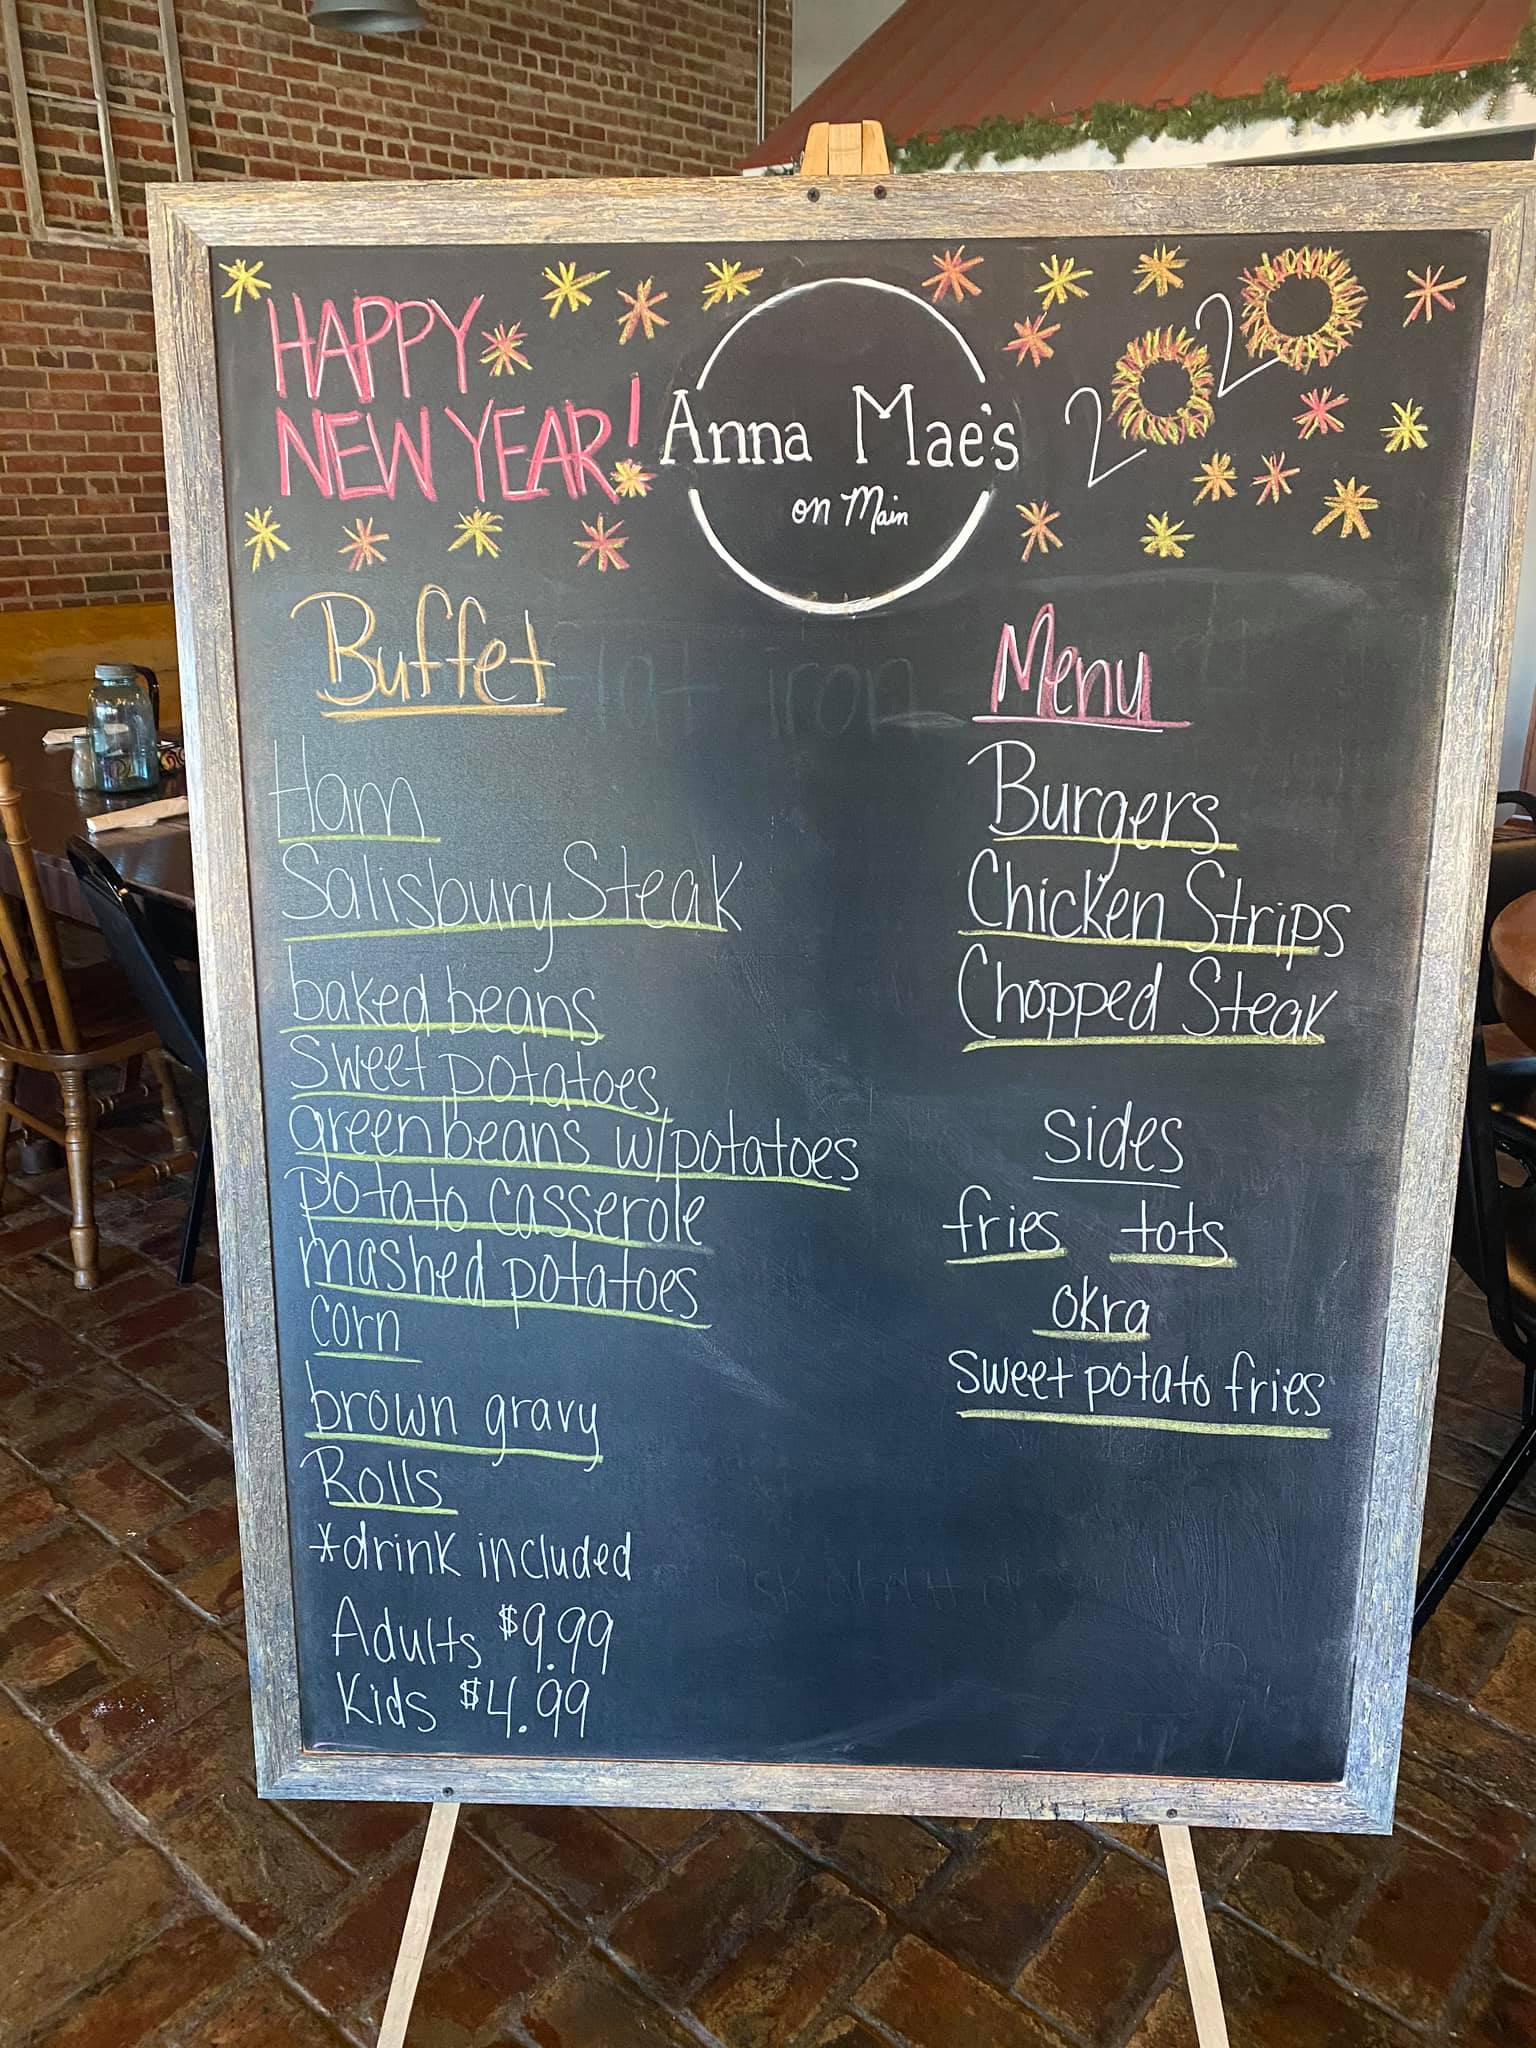 HAPPY
NEW YEAR!
Anna Mae's
on Main
2020
Buffet
Ham
Salisbury Steak
baked beans
Sweet potatoes
green beans w/potatoes
potato casserole
mashed potatoes
corn
brown gravy
Rolls
*drink included
Adults $9.99
Kids $4.99
Menu
Burgers
Chicken Strips
Chopped Steak
Sides
fries tots
okra
sweet potato fries